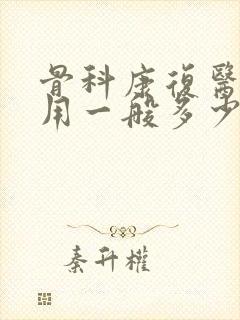 骨科康復醫
用一般多少
秦升權